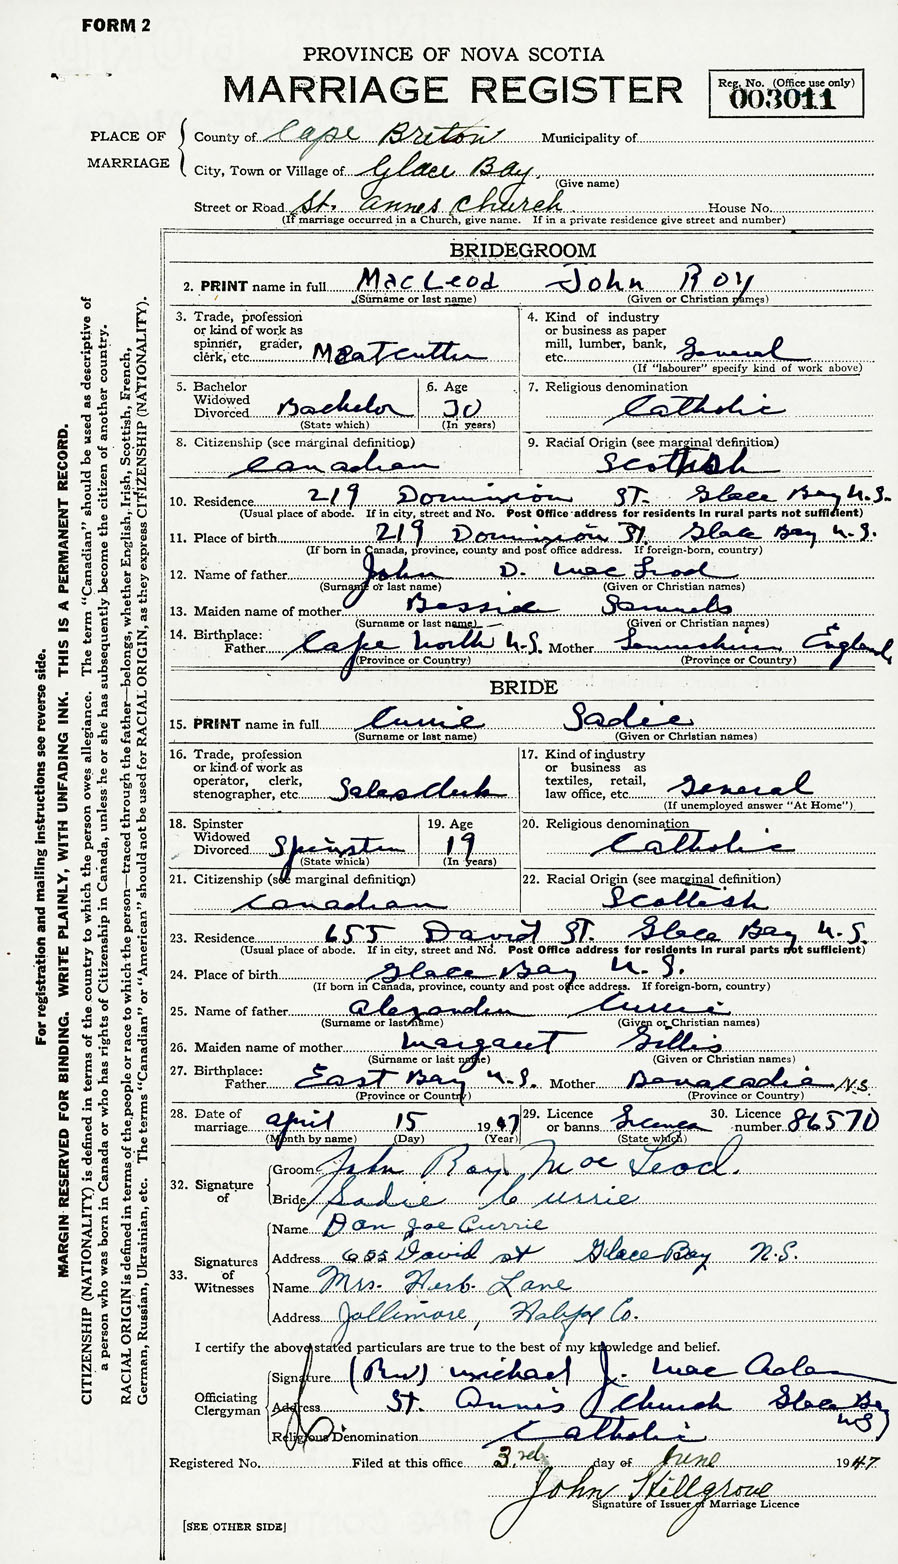 FORM 2
PROVINCE OF NOVA SCOTIA
MARRIAGE REGISTER
Reg. No. (Office use only)
003011
PLACE OF MARRIAGE
County of Cape Breton Municipality of
City, Town or Village of Glace Bay.
(Give name)
Street or Road St. Annes Church House No.
(If marriage occurred in a Church, give name. If in a private residence give street and number)
BRIDEGROOM
2. PRINT name in full MacLeod John Roy
(Surname or last name) (Given or Christian names)
3. Trade, profession or kind of work as spinner, grader, clerk, etc. Meatcutter
4. Kind of industry or business as paper mill, lumber, bank, etc. General
(If "labourer" specify kind of work above)
5. Bachelor Widowed Divorced Bachelor
(State which)
6. Age 30
(In years)
7. Religious denomination Catholic
8. Citizenship (see marginal definition) Canadian
9. Racial Origin (see marginal definition) Scottish
10. Residence 219 Dominion St. Glace Bay N.S.
(Usual place of abode. If in city, street and No. Post Office address for residents in rural parts not sufficient)
11. Place of birth 219 Dominion St. Glace Bay N.S.
(If born in Canada, province, county and post office address. If foreign-born, country)
12. Name of father John D. MacLeod
(Surname or last name) (Given or Christian names)
13. Maiden name of mother Bessie Samuels
(Surname or last name) (Given or Christian names)
14. Birthplace: Father Cape North N.S. Mother England
(Province or Country) (Province or Country)
BRIDE
15. PRINT name in full Currie Sadie
(Surname or last name) (Given or Christian names)
16. Trade, profession or kind of work as operator, clerk, stenographer, etc. Sales Clerk
17. Kind of industry or business as textiles, retail, law office, etc. General
(If unemployed answer "At Home")
18. Spinster Widowed Divorced Spinster
(State which)
19. Age 19
(In years)
20. Religious denomination Catholic
21. Citizenship (see marginal definition) Canadian
22. Racial Origin (see marginal definition) Scottish
23. Residence 655 David St. Glace Bay N.S.
(Usual place of abode. If in city, street and No. Post Office address for residents in rural parts not sufficient)
24. Place of birth Glace Bay N.S.
(If born in Canada, province, county and post office address. If foreign-born, country)
25. Name of father Alexander Currie
(Surname or last name) (Given or Christian names)
26. Maiden name of mother Margaret Gillis
(Surname or last name) (Given or Christian names)
27. Birthplace: Father East Bay N.S. Mother Benacadie N.S.
(Province or Country) (Province or Country)
28. Date of marriage April 15 1947
(Month by name) (Day) (Year)
29. Licence or banns. License
(State which)
30. Licence number 86570
32. Signature of
Groom John Roy MacLeod.
Bride Sadie Currie
33. Signatures of Witnesses
Name Dan Joe Currie
Address 655 David st Glace Bay N.S.
Name Mrs. Herb Lane
Address Jollimore, Halifax Co.
I certify the above stated particulars are true to the best of my knowledge and belief.
Officiating Clergyman
Signature (Rev) Michael J. MacAdam
Address St. Annes Church Glace Bay NS)
Religious Denomination Catholic
Registered No. Filed at this office 3rd day of June 1947
John Stillgrove
Signature of Issuer of Marriage Licence
[SEE OTHER SIDE]
For registration and mailing instructions see reverse side.
MARGIN RESERVED FOR BINDING. WRITE PLAINLY, WITH UNFADING INK. THIS IS A PERMANENT RECORD.
CITIZENSHIP (NATIONALITY) is defined in terms of the country to which the person owes allegiance. The term "Canadian" should be used as descriptive of
a person who was born in Canada or who has rights of Citizenship in Canada, unless he or she has subsequently become the citizen of another country.
RACIAL ORIGIN is defined in terms of the people or race to which the person—traced through the father—belongs, whether English, Irish, Scottish, French,
German, Russian, Ukrainian, etc. The terms "Canadian" or "American" should not be used for RACIAL ORIGIN, as they express CITIZENSHIP (NATIONALITY).